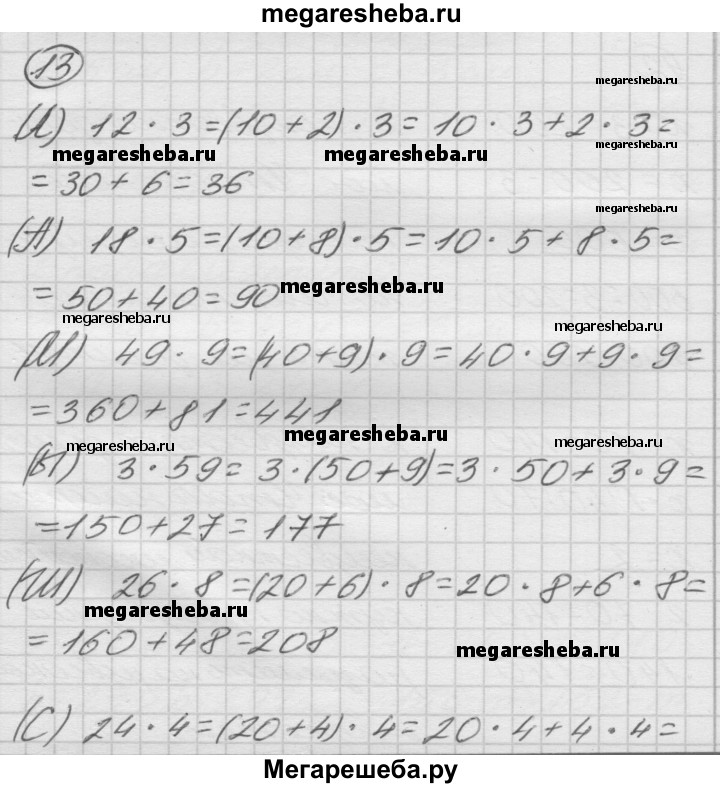 megaresheba.ru
13
megaresheba.ru
(Л) 12 · 3 = (10 + 2) · 3 = 10 · 3 + 2 · 3 =
megaresheba.ru megaresheba.ru megaresheba.ru
= 30 + 6 = 36
megaresheba.ru
(А) 18 · 5 = (10 + 8) · 5 = 10 · 5 + 8 · 5 =
= 50 + 40 = 90 megaresheba.ru
megaresheba.ru megaresheba.ru
(М) 49 · 9 = (40 + 9) · 9 = 40 · 9 + 9 · 9 =
= 360 + 81 = 441
megaresheba.ru
megaresheba.ru megaresheba.ru
(Ы) 3 · 59 = 3 · (50 + 9) = 3 · 50 + 3 · 9 =
= 150 + 27 = 177
(Ш) 26 · 8 = (20 + 6) · 8 = 20 · 8 + 6 · 8 =
megaresheba.ru
= 160 + 48 = 208
megaresheba.ru
(С) 24 · 4 = (20 + 4) · 4 = 20 · 4 + 4 · 4 =
Мегарешеба.ру